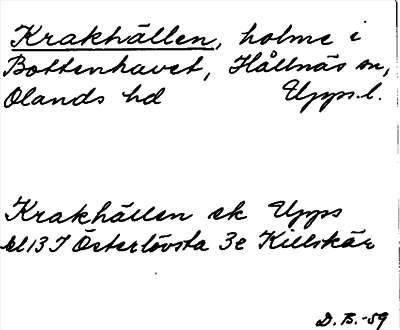 Krakhällen, holme i
Bottenhavet, Hållnäs sn,
Olands hd Upps. l.
Krakhällen ek Upps
bl 13 I Österlövsta 3e Killskär
D. B. -59